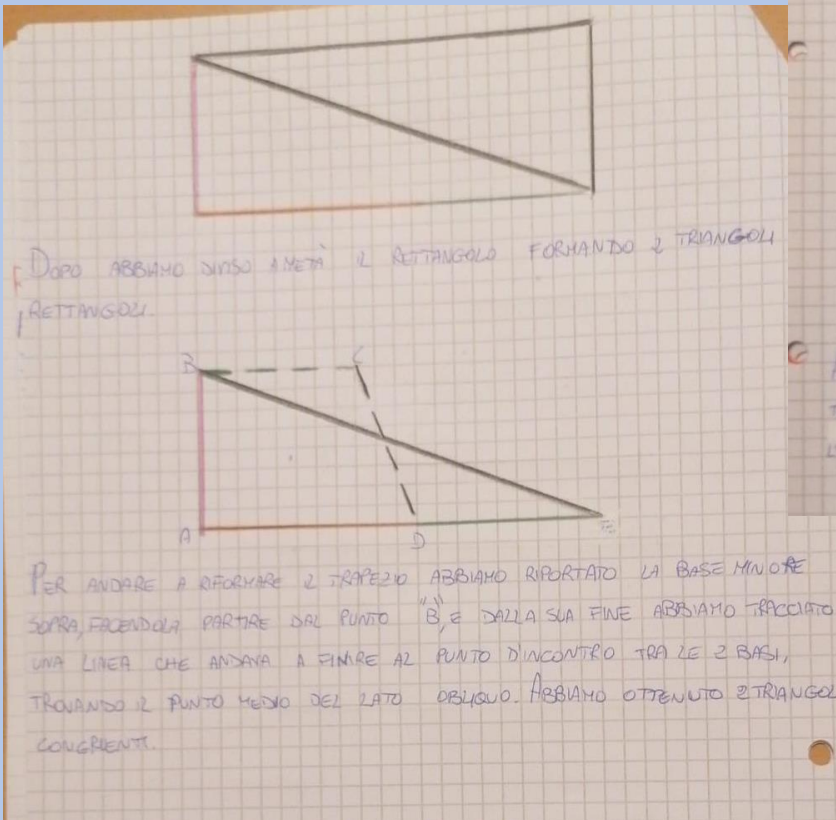 DOPO ABBIAMO DIVISO A METÀ IL RETTANGOLO FORMANDO 2 TRIANGOLI
RETTANGOLI.
B C
A D E
PER ANDARE A RIFORMARE IL TRAPEZIO ABBIAMO RIPORTATO LA BASE MINORE
SOPRA, FACENDOLA PARTIRE DAL PUNTO "B", E DALLA SUA FINE ABBIAMO TRACCIATO
UNA LINEA CHE ANDAVA A FINIRE AL PUNTO D'INCONTRO TRA LE 2 BASI,
TROVANDO IL PUNTO MEDIO DEL LATO OBLIQUO. ABBIAMO OTTENUTO 2 TRIANGOL
CONGRUENTI.